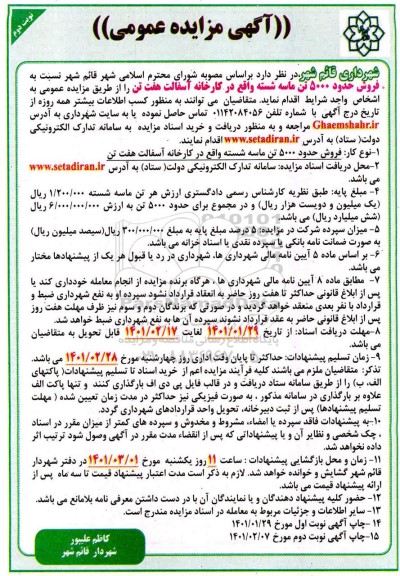 نوبت دوم
((آگهی مزایده عمومی))
شهرداری قائم شهر در نظر دارد براساس مصوبه شورای محترم اسلامی شهر قائم شهر نسبت به
فروش حدود ۵۰۰۰ تن ماسه شسته واقع در کارخانه آسفالت هفت تن را از طریق مزایده عمومی به
اشخاص واجد شرایط اقدام نماید. متقاضیان می توانند به منظور کسب اطلاعات بیشتر همه روزه از
تاریخ درج آگهی با شماره تلفن ۰۱۱۴۲۰۸۴۰۵۶ تماس حاصل نموده یا به سایت شهرداری به آدرس
Ghaemshahr.ir مراجعه و به منظور دریافت و خرید اسناد مزایده به سامانه تدارک الکترونیکی
دولت( ستاد) به آدرس www.setadiran.ir اقدام نمایند.
۱-نوع کار: فروش حدود ۵۰۰۰ تن ماسه شسته واقع در کارخانه آسفالت هفت تن
۲-محل دریافت اسناد مزایده: سامانه تدارک الکترونیکی دولت( ستاد) به آدرس www.setadiran.ir
می باشد.
۴- مبلغ پایه: طبق نظریه کارشناس رسمی دادگستری ارزش هر تن ماسه شسته ۱/۲۰۰/۰۰۰ ریال
(یک میلیون و دویست هزار ریال) و در مجموع برای حدود ۵۰۰۰ تن به ارزش ۶/۰۰۰/۰۰۰/۰۰۰ ریال
(شش میلیارد ریال) می باشد.
۵- میزان سپرده شرکت در مزایده: ۵ درصد مبلغ پایه به مبلغ ۳۰۰/۰۰۰/۰۰۰ ریال(سیصد میلیون ریال)
به صورت ضمانت نامه بانکی یا سپرده نقدی یا اسناد خزانه می باشد.
۶- بر اساس ماده ۵ آیین نامه مالی شهرداری ها، شهرداری در رد یا قبول هر یک از پیشنهادها مختار
می باشد.
۷- مطابق ماده ۸ آیین نامه مالی شهرداری ها ، هرگاه برنده مزایده از انجام معامله خودداری کند یا
پس از ابلاغ قانونی حداکثر تا هفت روز حاضر به انعقاد قرارداد نشود سپرده او به نفع شهرداری ضبط و
قرارداد با نفر بعدی منعقد خواهد گردید و در صورتی که برندگان دوم و سوم نیز ظرف مهلت هفت روز
پس از ابلاغ قانونی حاضر به عقد قرارداد نشوند سپرده آن ها به نفع شهرداری ضبط خواهد شد.
۸-مهلت دریافت اسناد: از تاریخ ۱۴۰۱/۰۱/۲۹ لغایت ۱۴۰۱/۰۲/۱۷ قابل تحویل به متقاضیان
می باشد.
۹- زمان تسلیم پیشنهادات: حداکثر تا پایان وقت اداری روز چهارشنبه مورخ ۱۴۰۱/۰۲/۲۸ می باشد.
تذکر: متقاضیان ملزم می باشند کلیه فرآیند مزایده اعم از خرید اسناد تا تسلیم پیشنهادات( پاکتهای
الف، ب) را از طریق سامانه ستاد دریافت و در قالب فایل پی دی اف بارگذاری کنند و تنها پاکت الف
علاوه بر بارگذاری در سامانه مذکور ، به صورت فیزیکی نیز حداکثر در مدت زمان تعیین شده ( مهلت
تسلیم پیشنهادها) پس از ثبت دبیرخانه، تحویل واحد قراردادهای شهرداری گردد.
۱۰-به پیشنهادات فاقد سپرده یا امضاء، مشروط و مخدوش و سپرده های کمتر از میزان مقرر در اسناد
، چک شخصی و نظایر آن و یا پیشنهاداتی که پس از انقضاء مدت مقرر در آگهی وصول شود ترتیب اثر
داده نخواهد شد.
۱۱- زمان و محل بازگشایی پیشنهادات : ساعت ۱۱ روز یکشنبه مورخ ۱۴۰۱/۰۳/۰۱ در دفتر شهردار
قائم شهر گشایش و خوانده خواهد شد. لازم به ذکر است مدت اعتبار پیشنهاد قیمت تا سه ماه پس از
ارائه پیشنهاد قیمت می باشد.
۱۲- حضور کلیه پیشنهاد دهندگان و یا نمایندگان آن با در دست داشتن معرفی نامه بلامانع می باشد.
۱۳- سایر اطلاعات و جزئیات مربوط به معامله در اسناد مزایده مندرج است.
۱۴-چاپ آگهی نوبت اول مورخ ۱۴۰۱/۰۱/۲۹
۱۵-چاپ آگهی نوبت دوم مورخ ۱۴۰۱/۰۲/۰۷
کاظم علیپور
شهردار قائم شهر